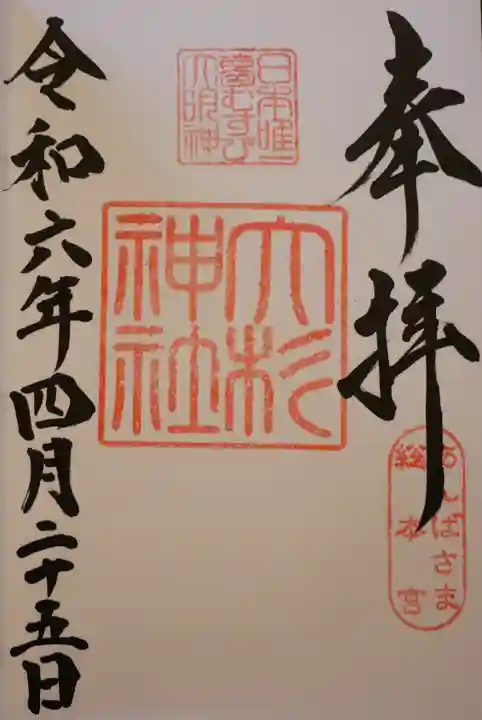 奉拝
あんばさま
総本宮
日本唯一
夢むすび
大明神
大杉
神社
令和六年四月二十五日